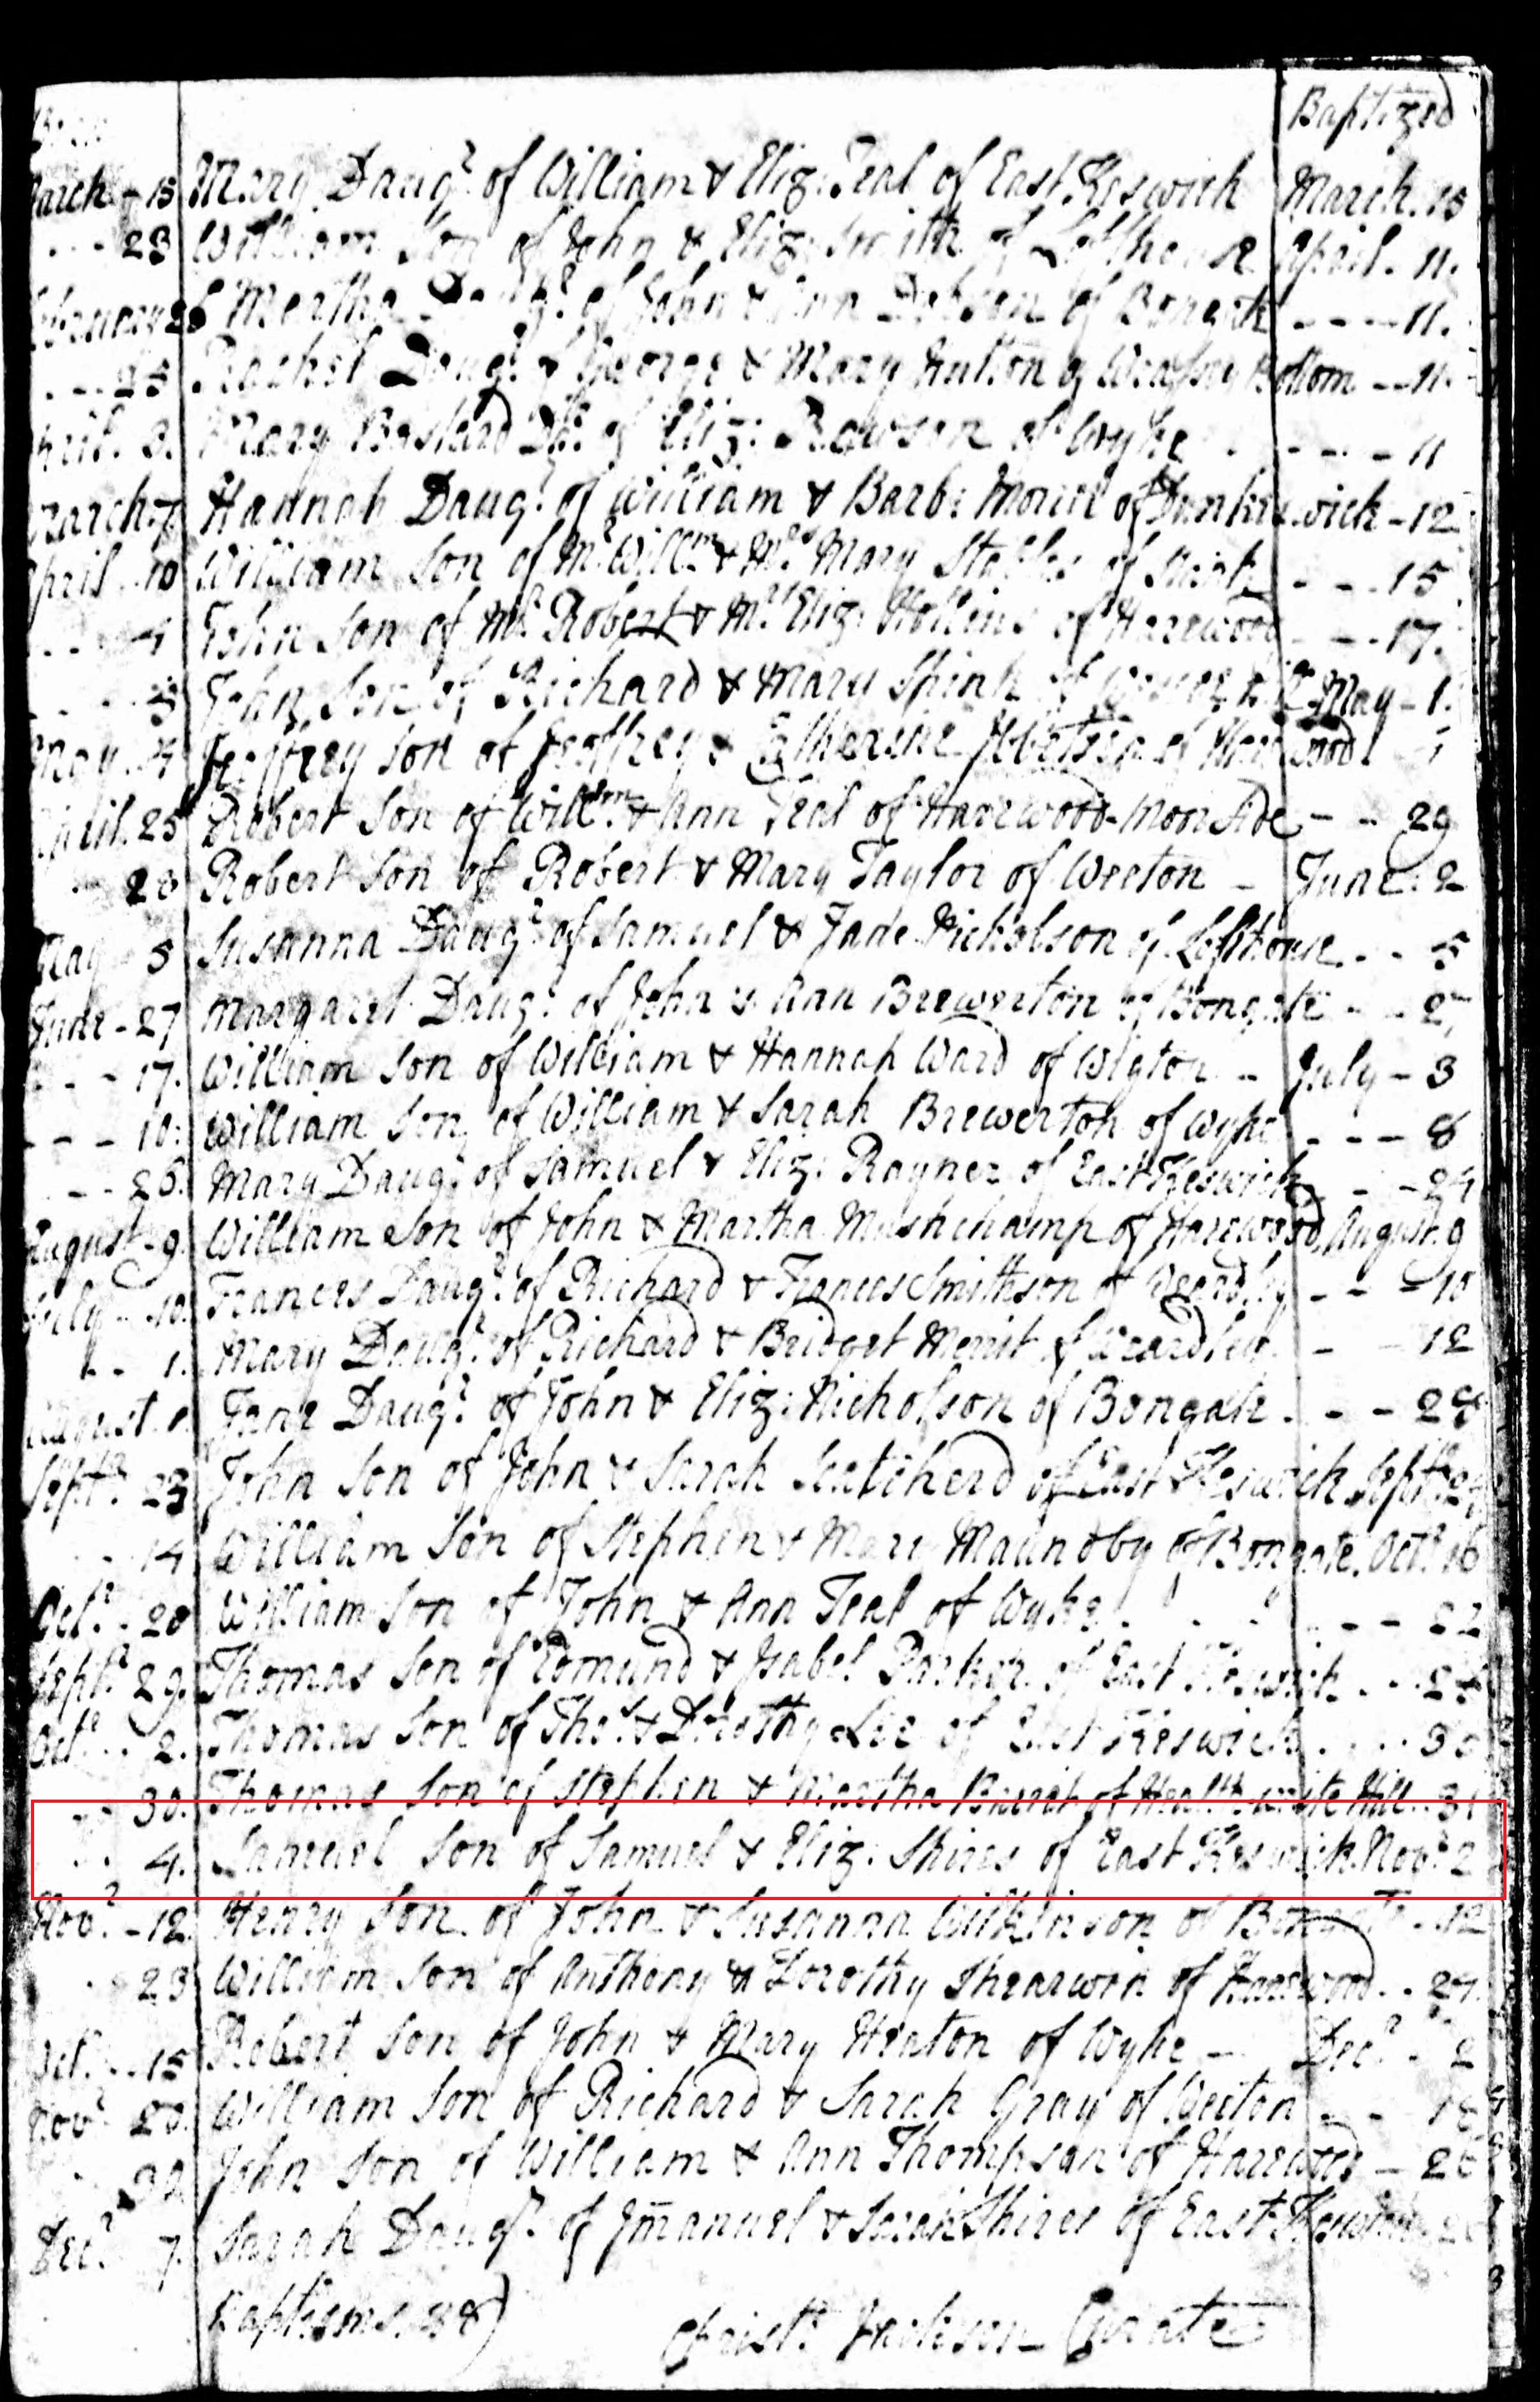 Baptized
March - 15 Mary Daugr. of William & Eliz: Teal of East Keswick March. 15
- - - 23 William Son of John & Eliz: Smith of Lofthouse April. 11.
Martha Daugr. of John & Ann of Bongate - - - 11.
- - - 25 Rachel Daugr. of George & Mary Hutton of Bottom - - 11.
April. 3. Mary Bastard Dr. of Eliz: Rawson of Wyke - - - - 11
March. 7. Hannah Daugr. of William & Barb: of Dunkeswick - 12
April. 10 William Son of Mr. Willm. & Mrs. Mary Stables of - - - 15
- - - 4 John Son of Mr. Robert & Mrs. Eliz: Hollins of Harewood - - - 17.
John Son of Richard & Mary Spink of May - 1.
May. 4 Jeoffrey Son of Jeoffrey & Catherine of Harewood
April. 25 Robert Son of Willm. & Ann Teal of Harewood-Moor Side - - 29
Robert Son of Robert & Mary Taylor of Weeton - June: 2
May - 5 Susanna Daugr. of Samuel & Jane Nicholson of Lofthouse - - 5
June - 27 Margaret Daugr. of John & Ann Brewerton of Bongate - - 27
- - - 17. William Son of William & Hannah Ward of Wigton - July - 3
- - - 10: William Son of William & Sarah Brewerton of Wyke - - - 8
- - - 26. Mary Daugr. of Samuel & Eliz: Rayner of East Keswick - - - 24
August - 9. William Son of John & Martha Mushchamp of Harewood August. 9
July - 10. Frances Daugr. of Richard & Frances Smithson of Weardley - - - 10
- - 1. Mary Daugr. of Richard & Bridget Merrit of Weardley - - 12
August. 1. Jane Daugr. of John & Eliz: Nicholson of Bongate. - - - 28
Septr. 23 John Son of John & Sarah Scatcherd of East Keswick Septr.
- - 14 William Son of Stephen & Mary Maundby of Bongate. Octr. 16
Octr. - 20 William Son of John & Ann Teal of Wyke - - - 22
Septr. 29. Thomas Son of Edmund & Isabel Parker of East Keswick - - -
Octr. - - 2. Thomas Son of Thos. & Dorothy Lee of East Keswick - - - 30
- - 30. Thomas Son of Stephen & Martha of Hill - - 31
- - 4. Samuel Son of Samuel & Eliz: Shires of East Keswick. Novr. 2
Novr. - 12. Henry Son of John & Susanna Wilkinson of Bongate - 12
- - 23 William Son of Anthony & Dorothy Thearwin of Harewood - - 27.
Octr. - - 15 Robert Son of John & Mary Heaton of Wyke - Decr. - 2
Novr. William Son of Richard & Sarah Gray of Weeton - -
John Son of William & Ann Thompson of Harewood - 26
Decr. 7. Sarah Daugr. of Jmanuel & Sarah Shires of East Keswick
Baptisms. 38)
Christr. Jackson Curate